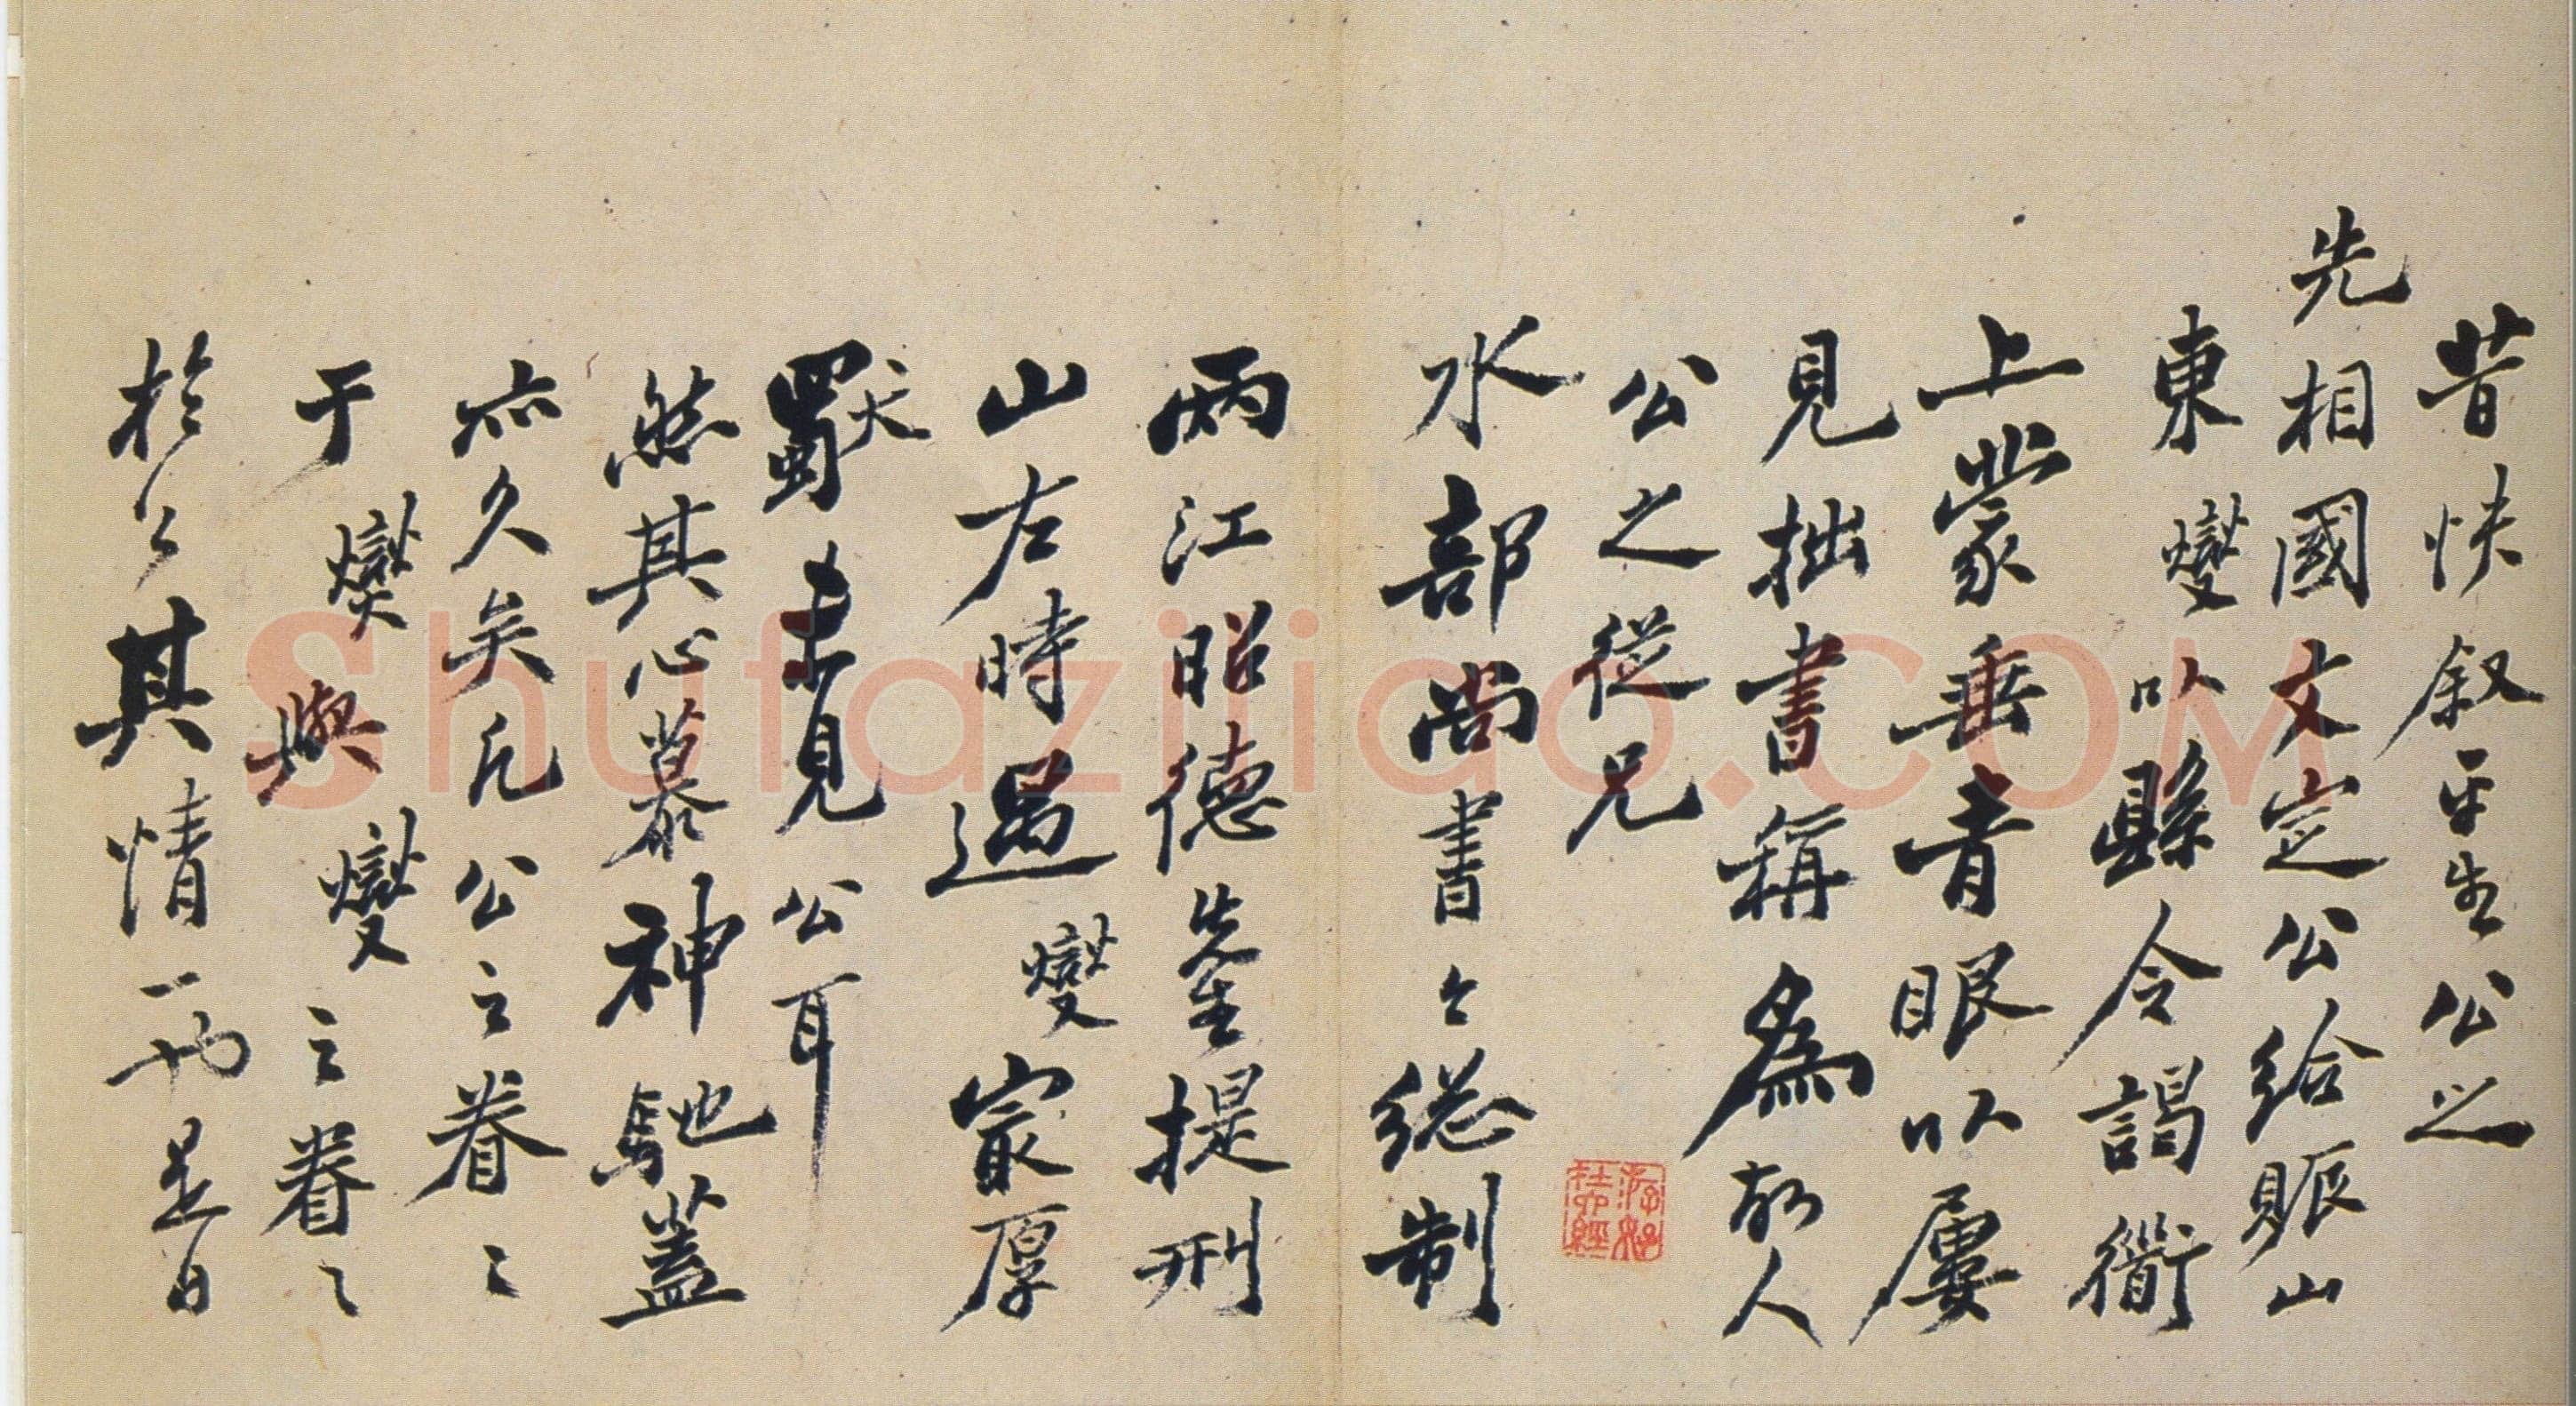 昔快叙平生公之
先相國文定公給賑山
東燮以縣令謁衙
上蒙垂青眼以屢
見拙書稱為故人
公之從兄
水部尚書々總制
兩江昭德先生提刑
山左時過燮寂厚
獨未見公耳
然其心慕神馳蓋
亦久矣凡公之眷々
于燮與燮之眷々
於公其情一也是日
Shufaziliao.COM